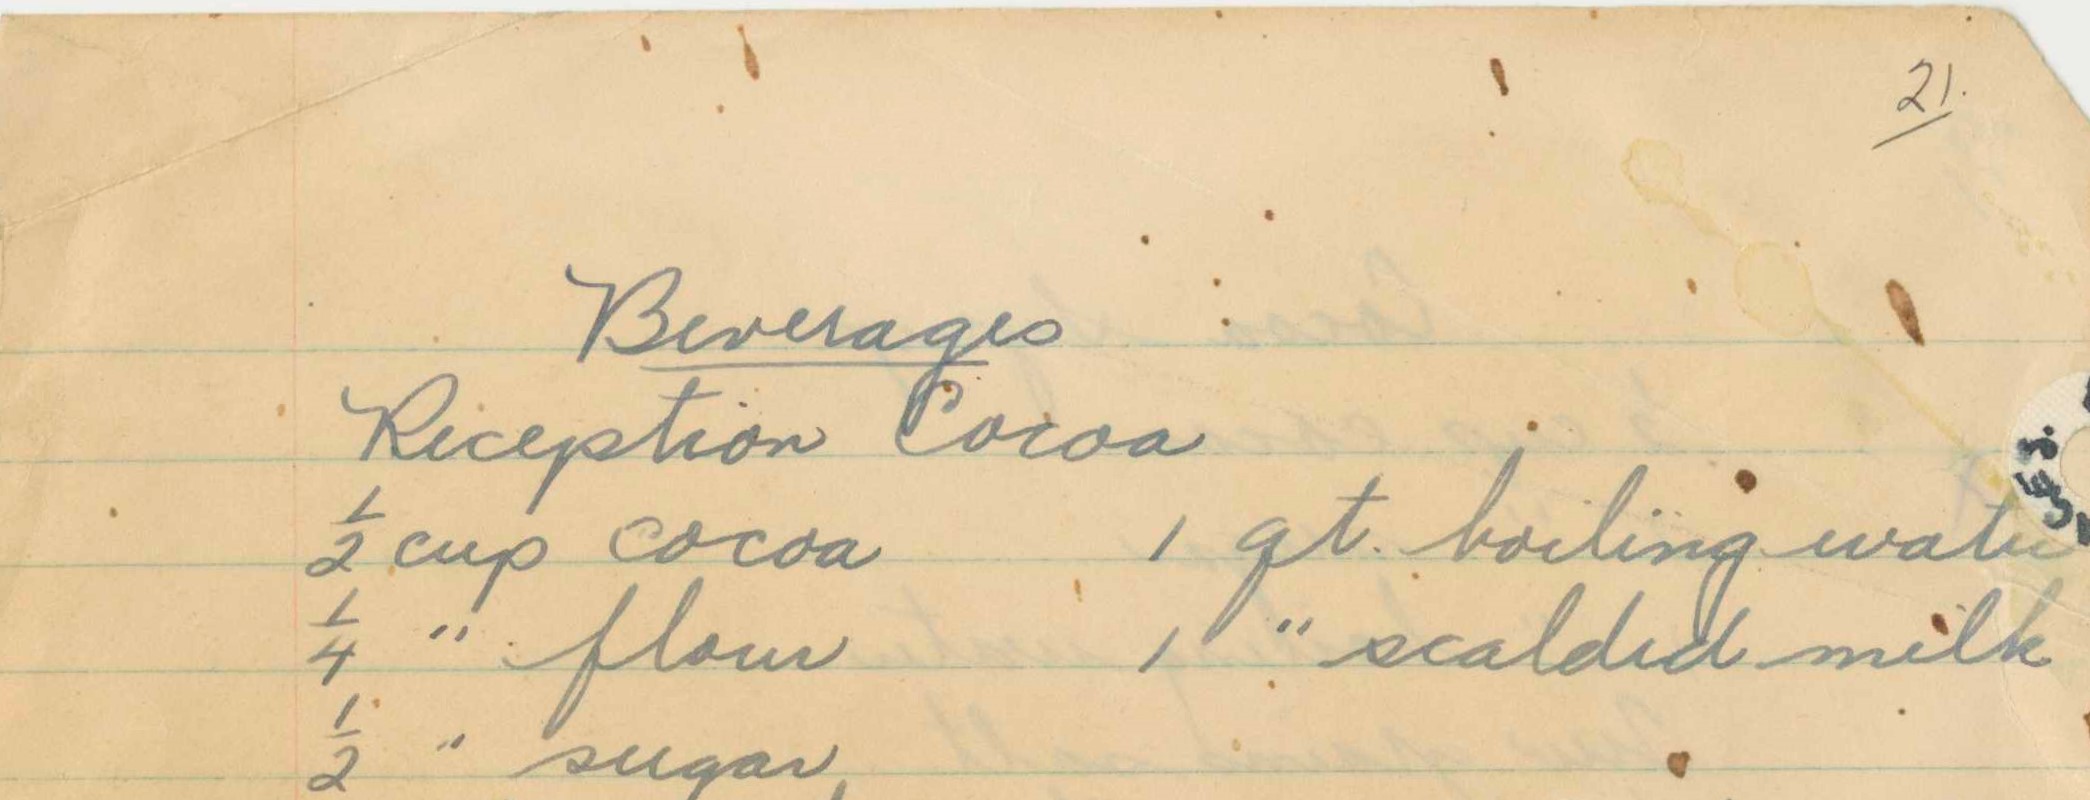 21.
Beverages
Reception Cocoa
1/2 cup cocoa 1 qt. boiling water
1/4 " flour 1 " scalded milk
1/2 " sugar